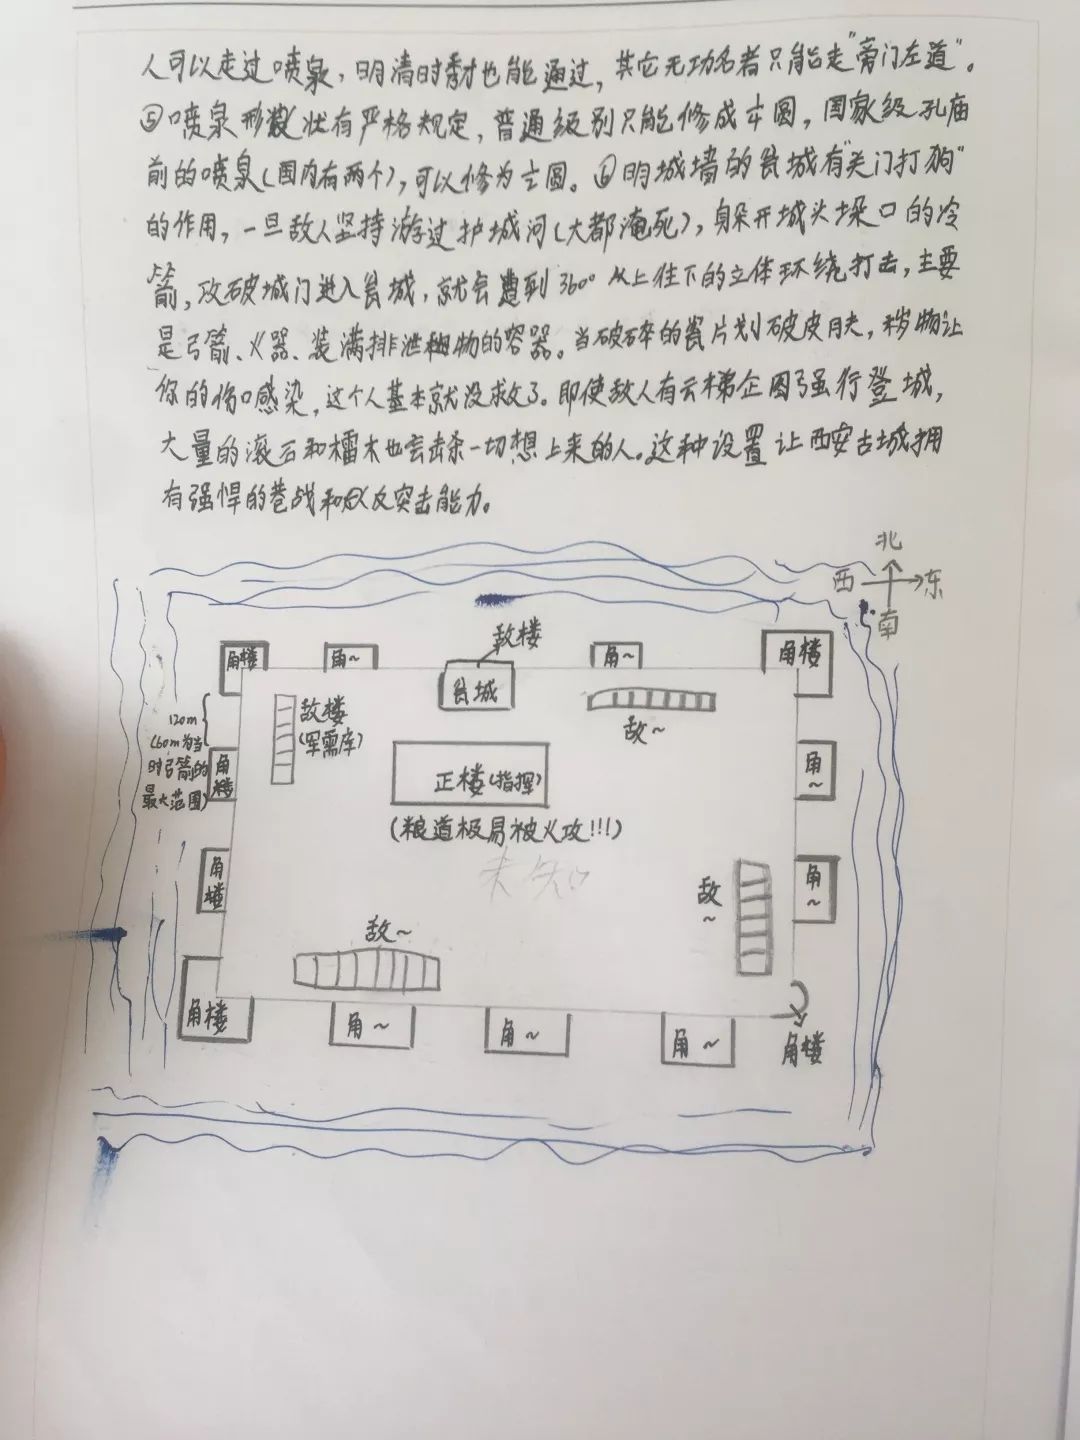 人可以走过喷泉，明清时秀才也能通过，其它无功名者只能走“旁门左道”。
⑤喷泉形状有严格规定，普通级别只能修成半圆，国家级孔庙
前的喷泉（国内有两个），可以修为立圆。⑥明城墙的瓮城有“关门打狗”
的作用，一旦敌人坚持游过护城河（大都淹死），躲开城头垛口的冷
箭，攻破城门进入瓮城，就会遭到360°从上往下的立体环绕打击，主要
是弓箭、火器、装满排泄物的容器。当破碎的瓮片划破皮肤，秽物让
你的伤口感染，这个人基本就没救了。即使敌人有云梯企图强行登城，
大量的滚石和檑木也会击杀一切想上来的人。这种设置让西安古城拥
有强悍的巷战和反突击能力。
北
西 东
南
敌楼
角楼 角~ 瓮城 角~ 角楼
敌楼
(军需库)
敌~
120m
(60m为当
时弓箭的
最大范围)
角楼
正楼(指挥)
角~
(粮道极易被火攻!!!)
未知
角楼
敌~
角~
敌~
角楼 角~ 角~ 角~ 角楼